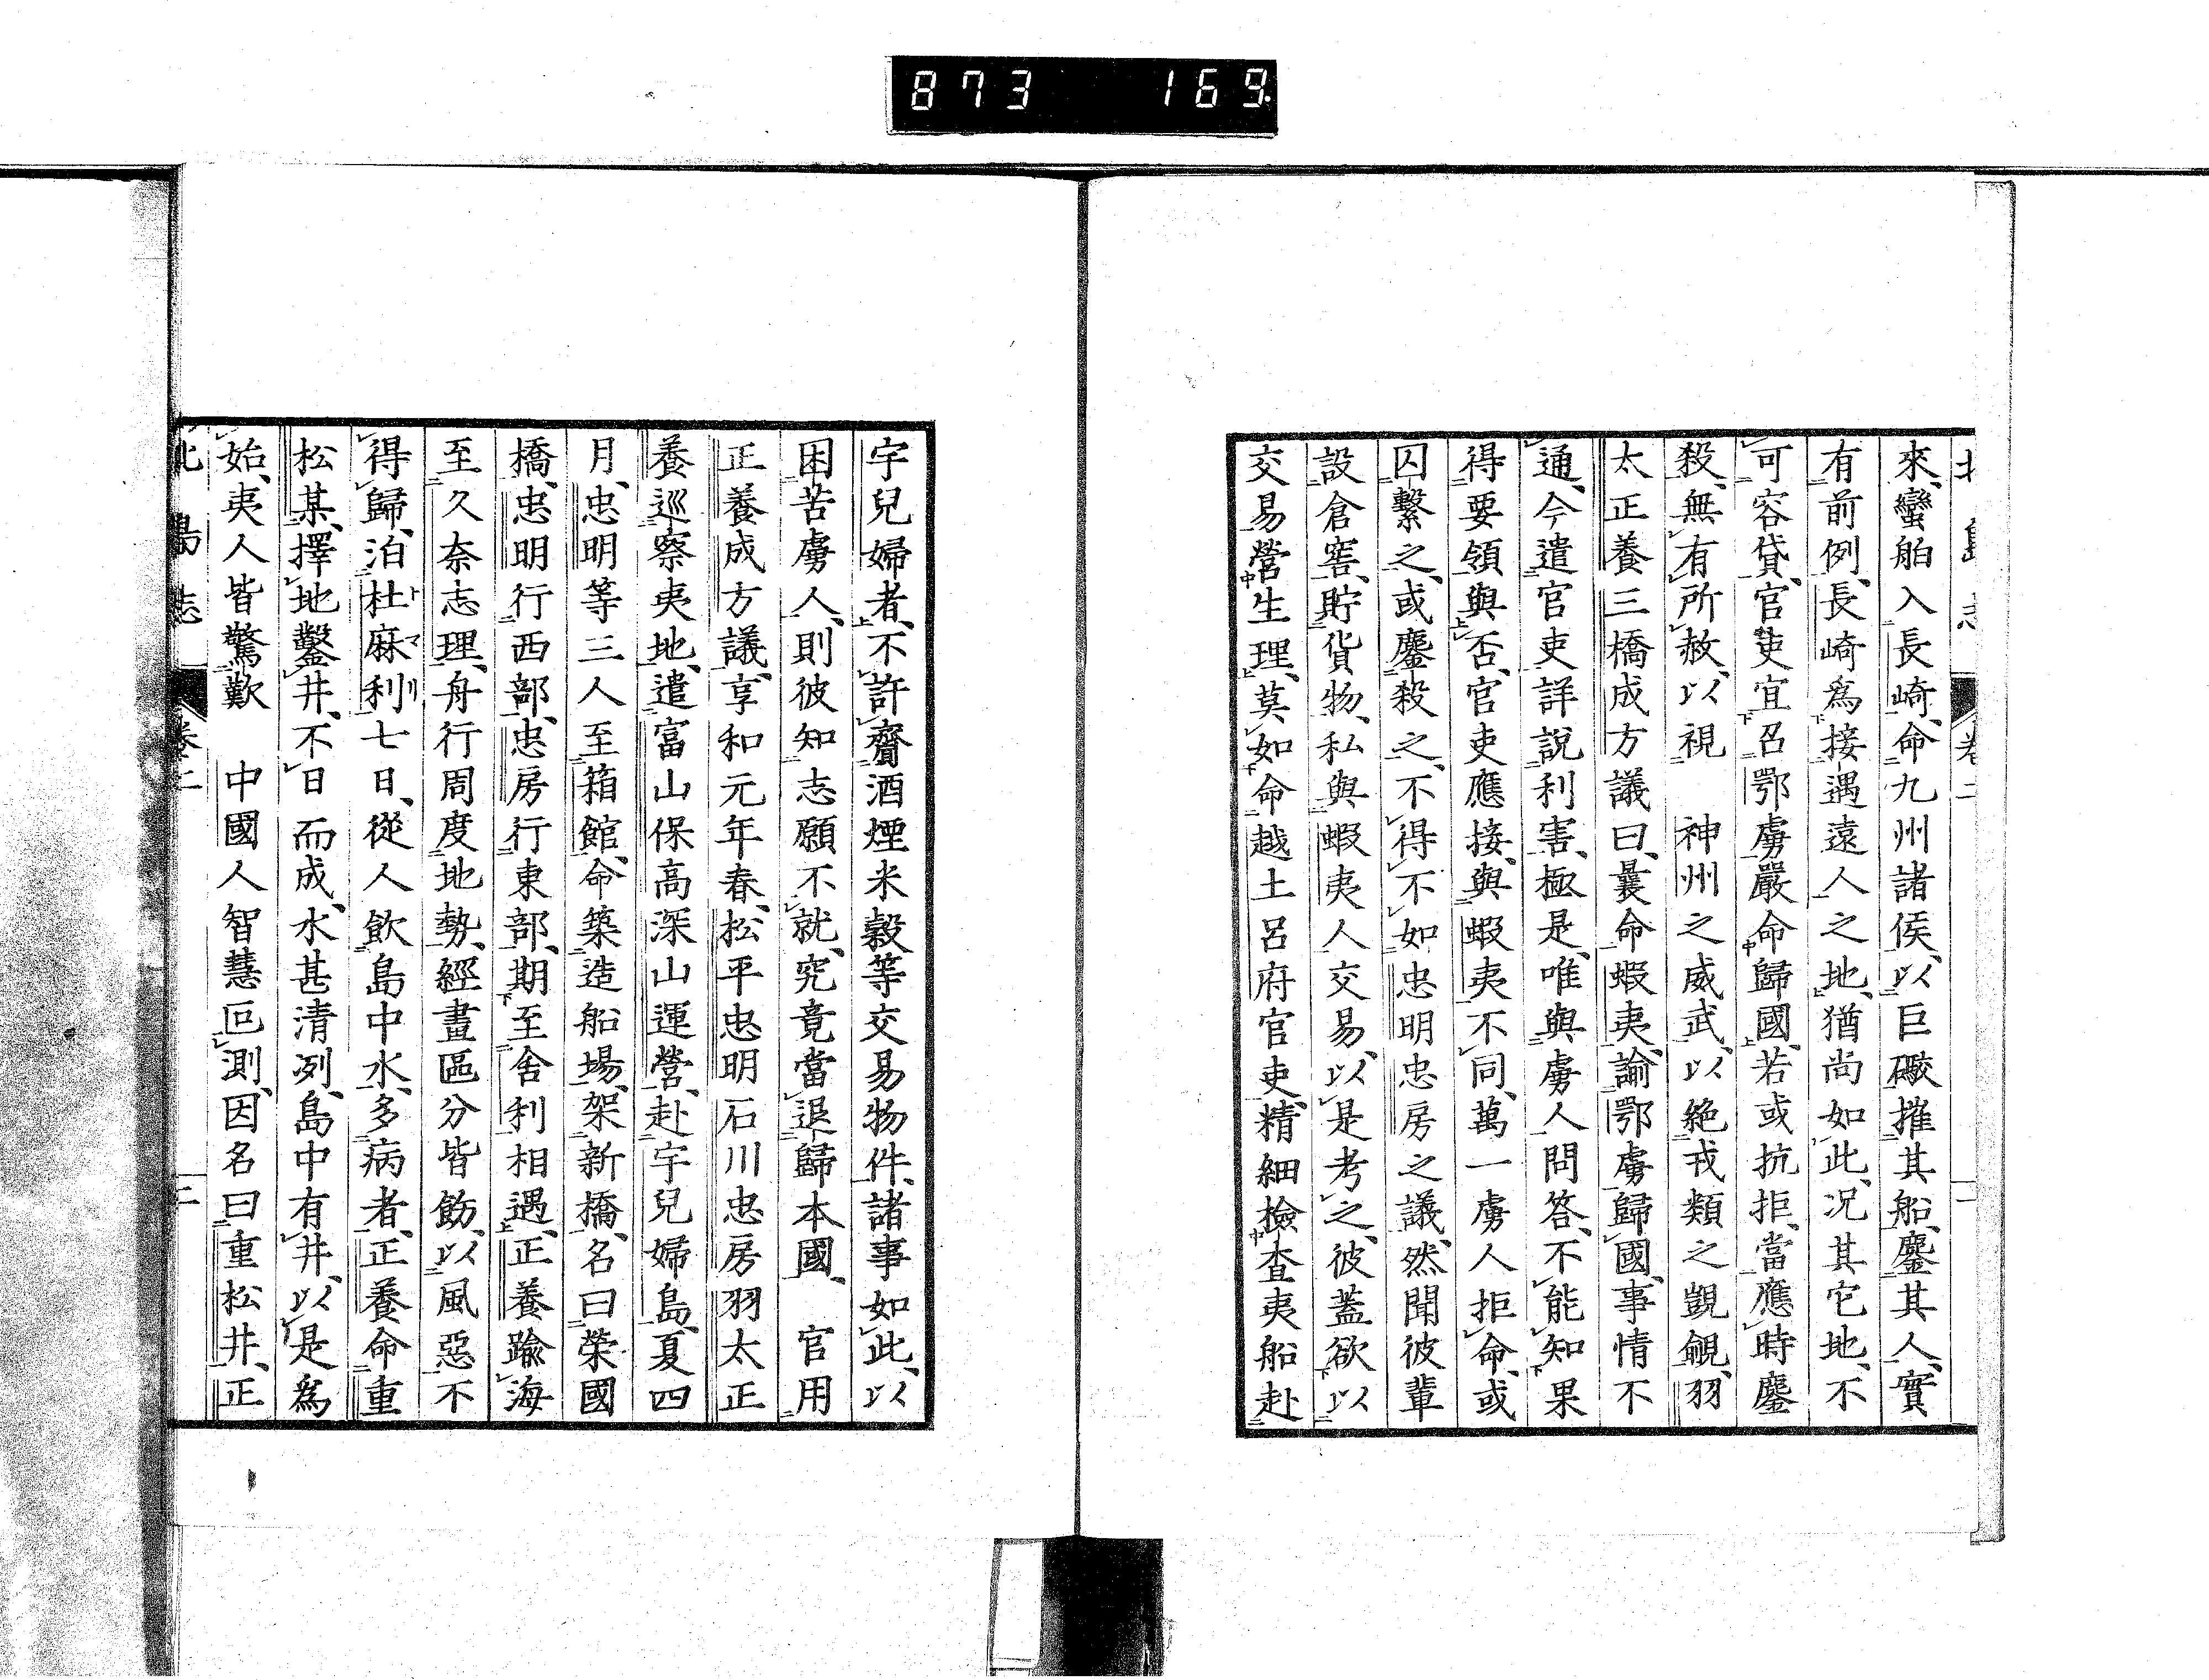 873 169
北島志 卷二 二
來、蠻舶入長崎、命九州諸侯、以巨礮摧其船、鏖其人、實
有前例、長崎爲接遇遠人之地、猶尚如此、况其它地、不
可容貸、官吏宜召鄂虜嚴命歸國、若或抗拒、當應時鏖
殺、無有所赦、以視 神州之威武、以絶戎類之覬覦、羽
太正養三橋成方議曰、曩命蝦夷、諭鄂虜歸國、事情不
通、今遣官吏詳説利害、極是、唯與虜人問答、不能知果
得要領與否、官吏應接、與蝦夷不同、萬一虜人拒命、或
囚繫之、或鏖殺之、不得不如忠明忠房之議、然聞彼輩
設倉窖、貯貨物、私與蝦夷人交易、以是考之、彼蓋欲以
交易營生理、莫如命越土呂府官吏、精細檢査夷船赴
宇兒婦者、不許齎酒煙米穀等交易物件、諸事如此、以
困苦虜人、則彼知志願不就、究竟當退歸本國、 官用
正養成方議、享和元年春、松平忠明石川忠房羽太正
養巡察夷地、遣富山保高深山運營、赴宇兒婦島、夏四
月、忠明等三人至箱館、命築造船場、架新橋、名曰榮國
橋、忠明行西部、忠房行東部、期至舍利相遇、正養踰海
至久奈志理、舟行周度地勢、經畫區分皆飭、以風惡不
得歸、泊杜麻利七日、從人飲島中水、多病者、正養命重
松某、擇地鑿井、不日而成、水甚清冽、島中有井、以是爲
始、夷人皆驚歎 中國人智慧叵測、因名曰重松井、正
北島志 卷二 三